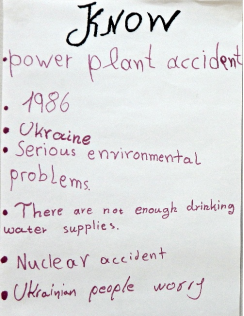 KNOW
• power plant accident
• 1986
• Ukraine
• Serious environmental
problems.
• There are not enough drinking
water supplies.
• Nuclear accident
• Ukrainian people worry